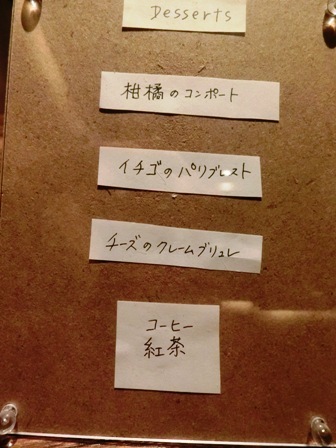 Desserts
柑橘のコンポート
イチゴのパリブレスト
チーズのクレームブリュレ
コーヒー
紅茶